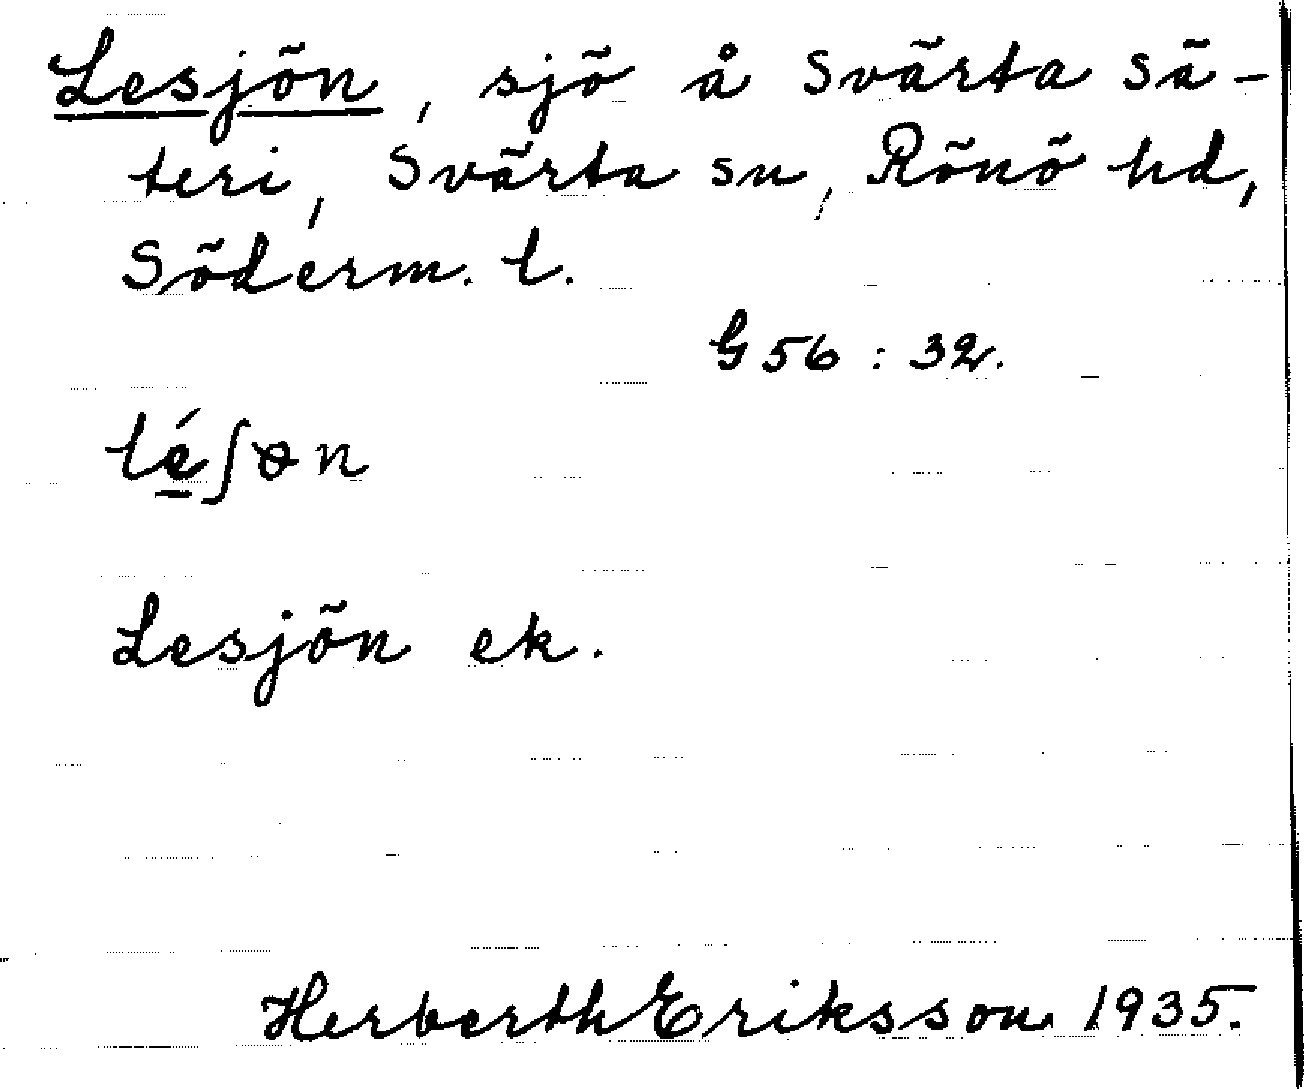 Lesjön, sjö å Svärta sä-
teri, Svärta sn, Rönö hd,
Söderm. l.
G 56 : 32.
Lesjön ek.
Herberth Eriksson 1935.